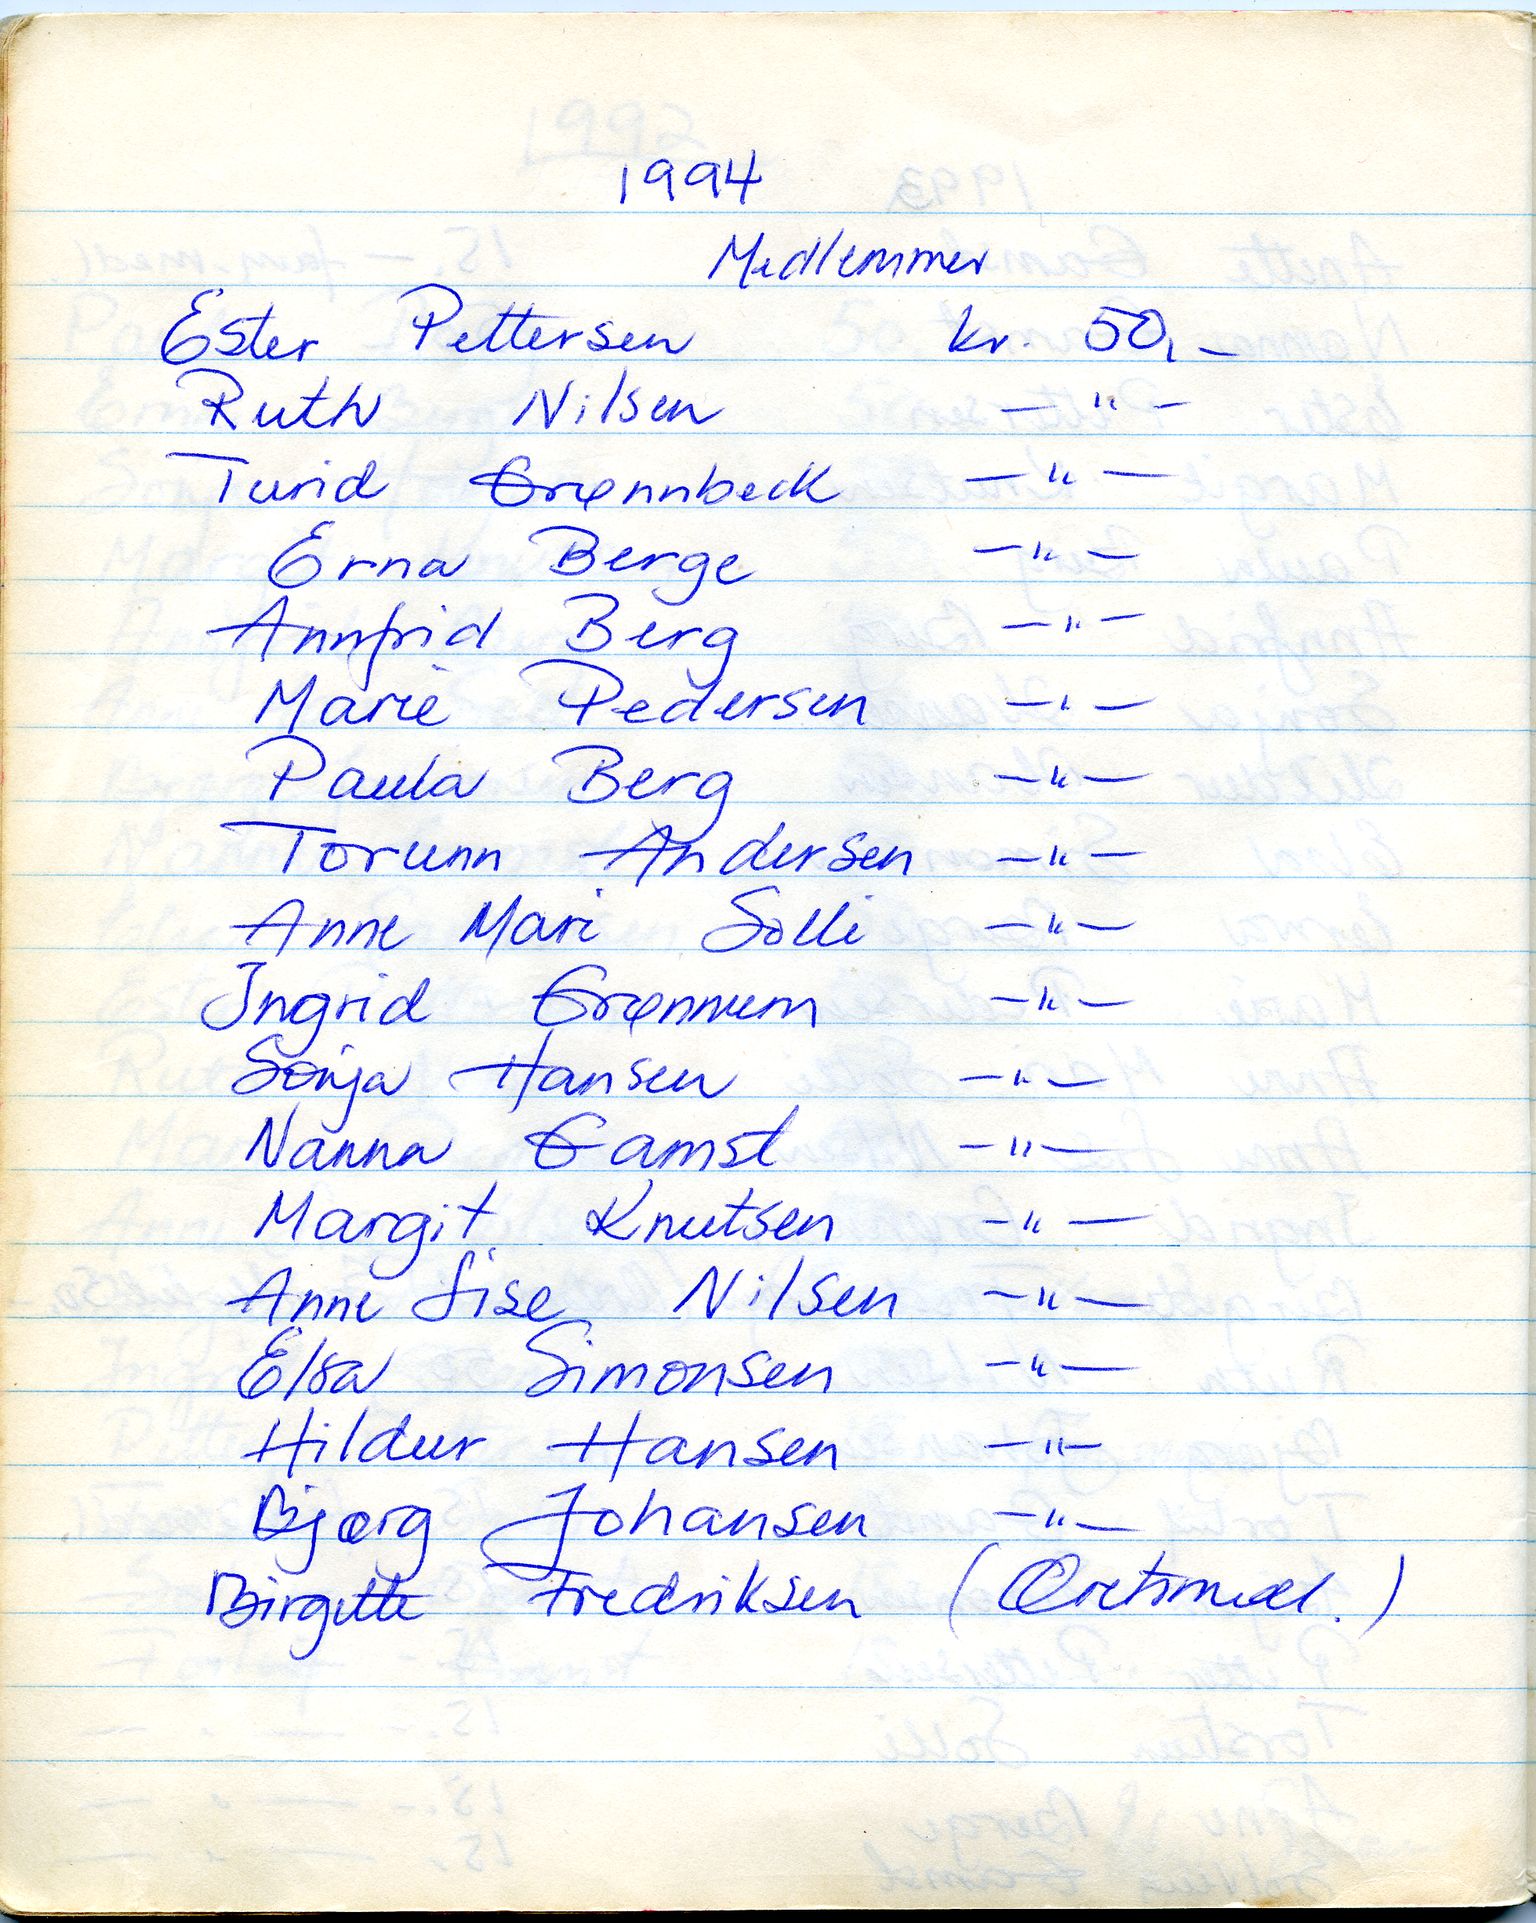 1994
Medlemmer
Ester Pettersen kr. 50,-
Ruth Nilsen —"—
Turid Grønnbeck —"—
Erna Berge —"—
Annfrid Berg —"—
Marie Pedersen —"—
Paula Berg —"—
Torunn Andersen —"—
Anne Mari Solli —"—
Ingrid Grønnum —"—
Sonja Hansen —"—
Nanna Gamst —"—
Margit Knutsen —"—
Anne Lise Nilsen —"—
Elsa Simonsen —"—
Hildur Hansen —"—
Bjørg Johansen —"—
Birgitte Fredriksen (Æretsmedl.)